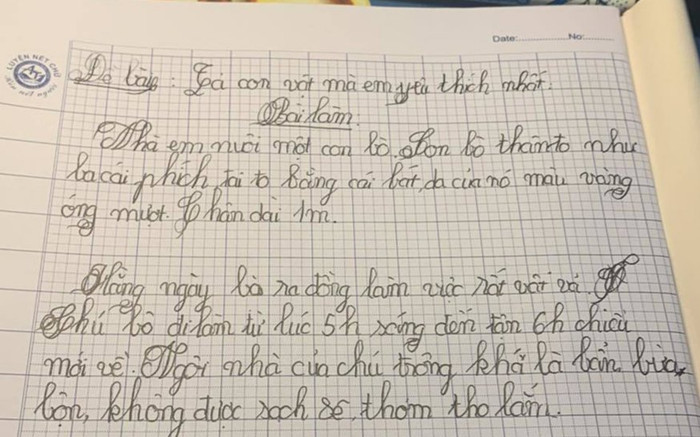 Date: No:
LUYỆN NÉT CHỮ
Đề bài: Tả con vật mà em yêu thích nhất.
Bài làm.
Nhà em nuôi một con bò. Con bò thân to như
ba cái phích, tai to bằng cái bát, da của nó màu vàng
óng mượt. Chân dài 1m.
Hằng ngày bò ra đồng làm việc rất vất vả.
Chú bò đi làm từ lúc 5h sáng đến tận 6h chiều
mới về. Ngôi nhà của chú trông khá là bẩn, bừa
bộn, không được sạch sẽ, thơm tho lắm.